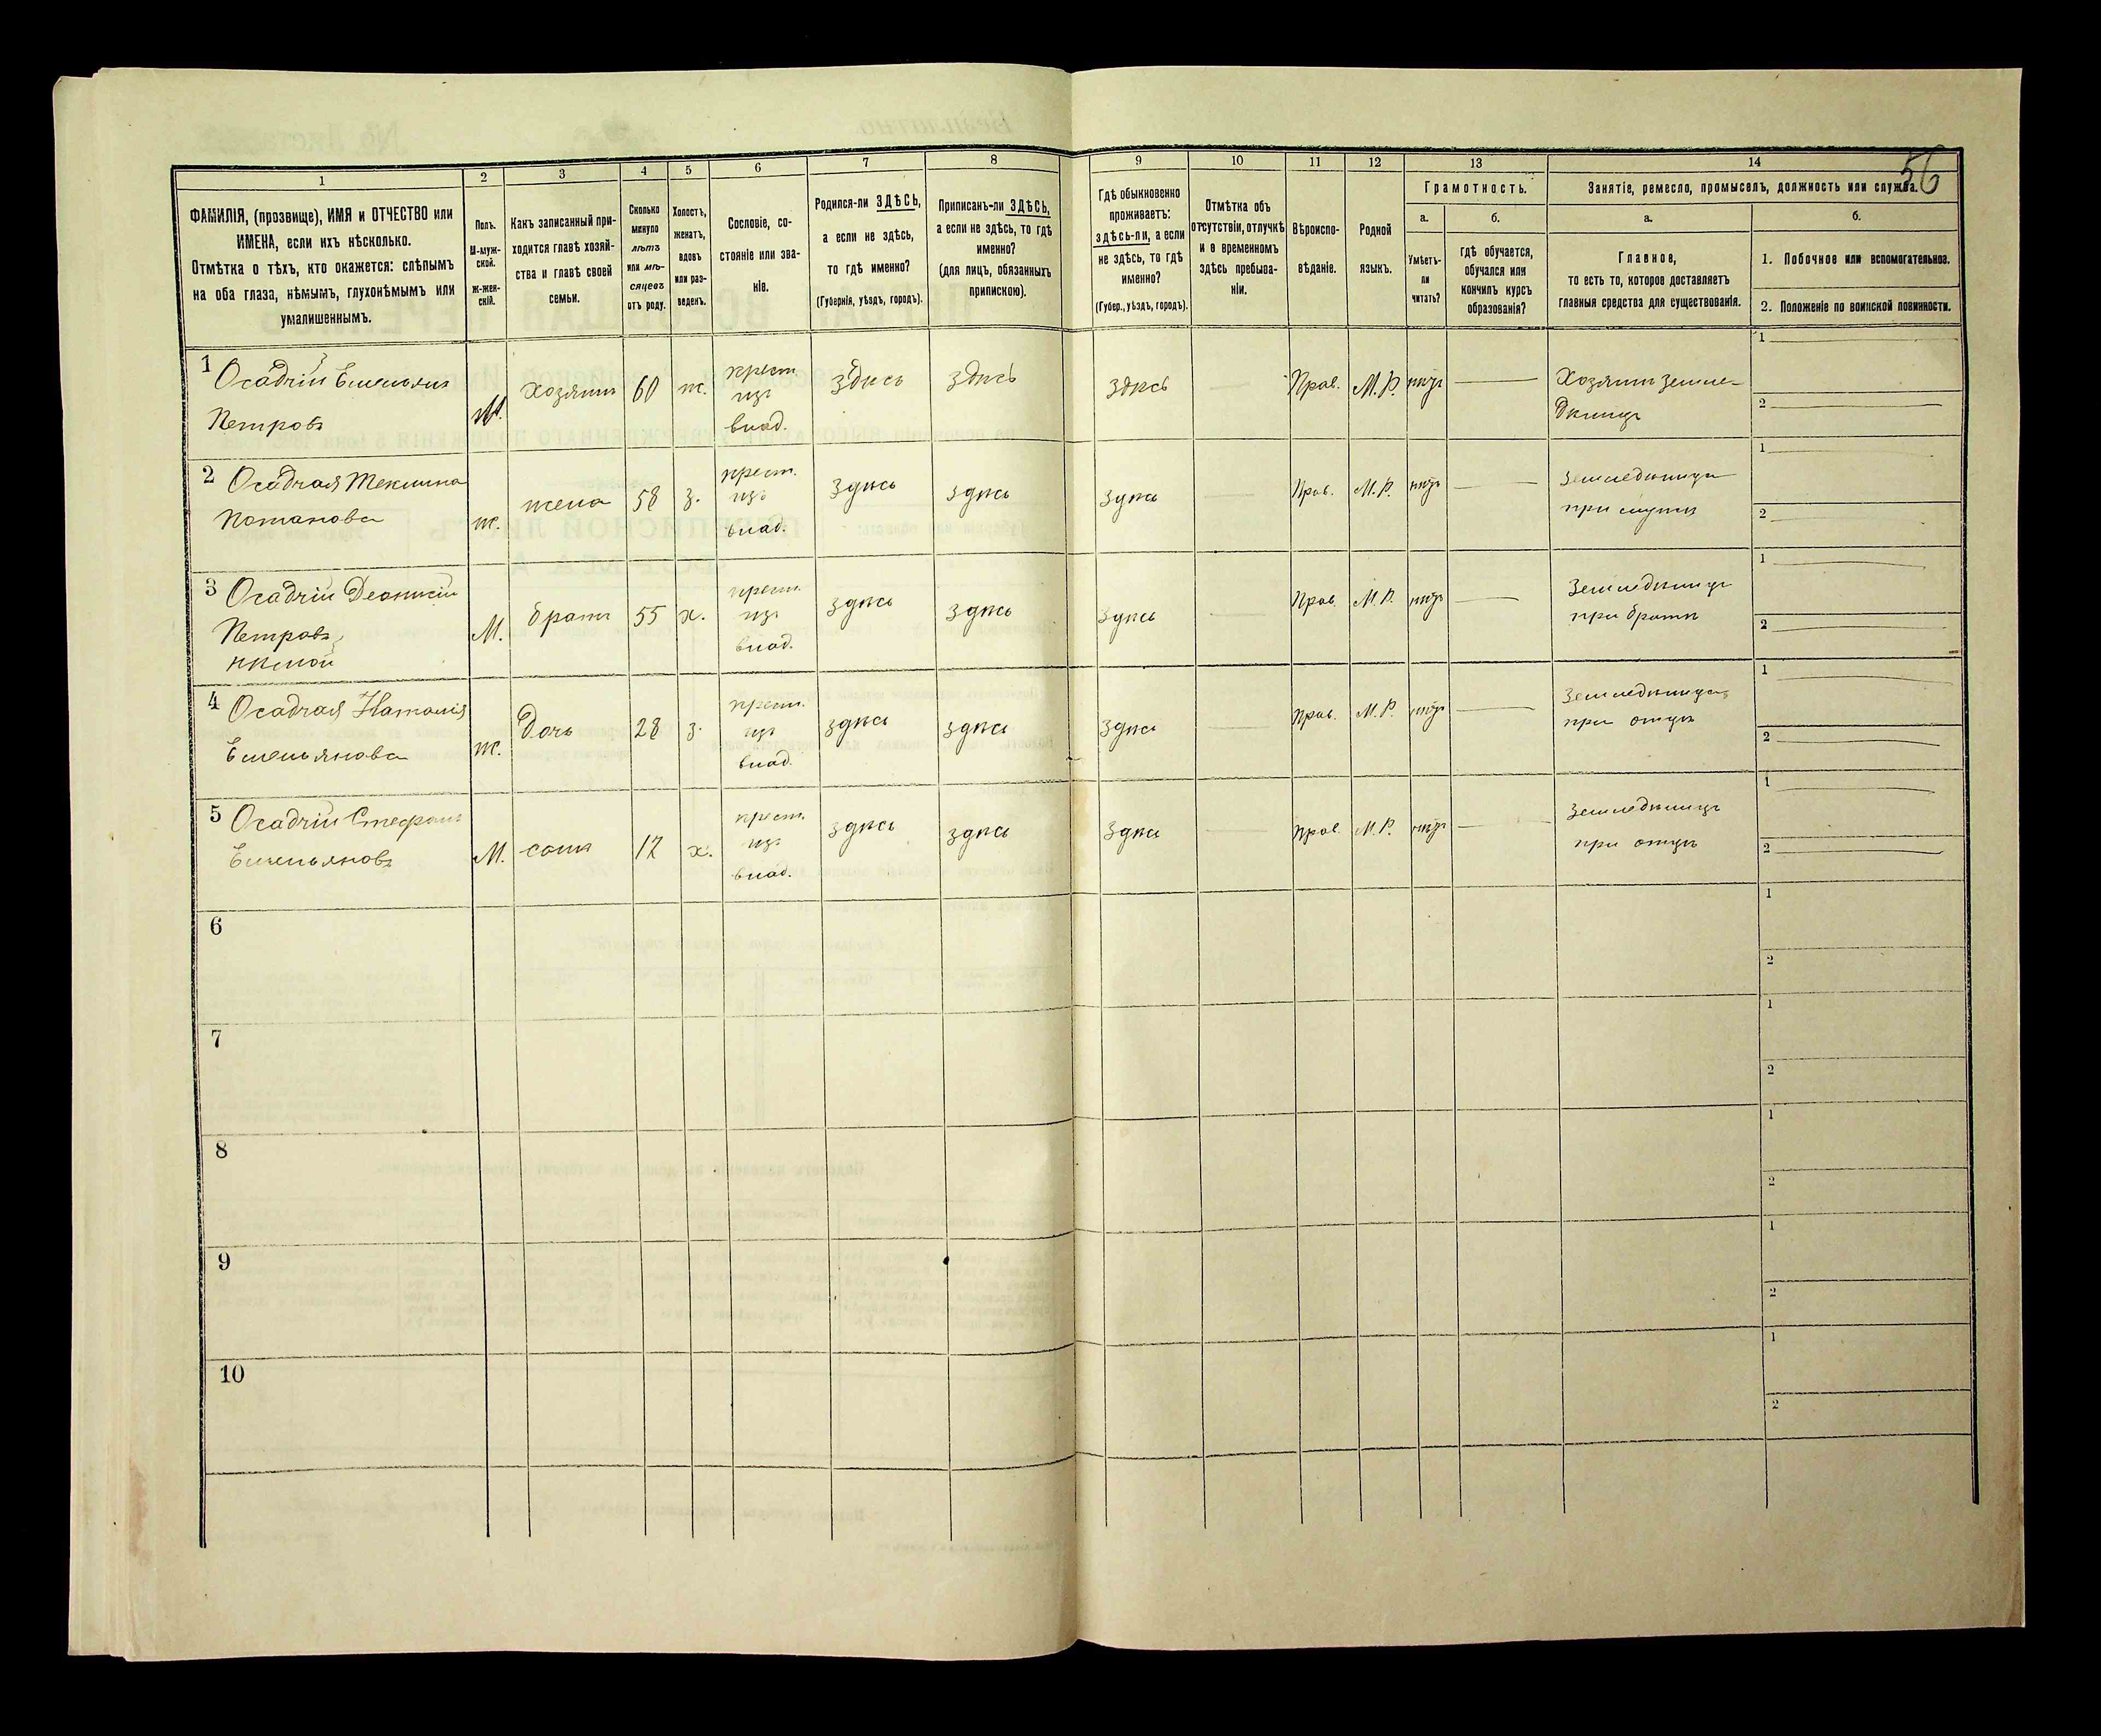 56
1 2 3 4 5 6 7 8 9 10 11 12 13 14
ФАМИЛІЯ, (прозвище), ИМЯ и ОТЧЕСТВО или
ИМЕНА, если ихъ нѣсколько.
Отмѣтка о тѣхъ, кто окажется: слѣпымъ
на оба глаза, нѣмымъ, глухонѣмымъ или
умалишеннымъ.
Полъ.
М-муж-
ской.
Ж-жен-
скій.
Какъ записанный при-
ходится главѣ хозяй-
ства и главѣ своей
семьи.
Сколько
минуло
лѣтъ
или мѣ-
сяцевъ
отъ роду.
Холостъ,
женатъ,
вдовъ
или раз-
веденъ.
Сословіе, со-
стояніе или зва-
ніе.
Родился-ли ЗДѢСЬ,
а если не здѣсь,
то гдѣ именно?
(Губернія, уѣздъ, городъ).
Приписанъ-ли ЗДѢСЬ,
а если не здѣсь, то гдѣ
именно?
(для лицъ, обязанныхъ
припискою).
Гдѣ обыкновенно
проживаетъ:
здѣсь-ли, а если
не здѣсь, то гдѣ
именно?
(Губер., уѣздъ, городъ).
Отмѣтка объ
отсутствіи, отлучкѣ
и о временномъ
здѣсь пребыва-
ніи.
Вѣроиспо-
вѣданіе.
Родной
языкъ.
Грамотность.
а.
Умѣетъ-
ли
читать?
б.
гдѣ обучается,
обучался или
кончилъ курсъ
образованія?
Занятіе, ремесло, промыселъ, должность или служба.
а.
Главное,
то есть то, которое доставляетъ
главныя средства для существованія.
б.
1. Побочное или вспомогательное.
2. Положеніе по воинской повинности.
1 Осадчій Емельянъ
Петровъ
М. Хозяинъ 60 ж.
крест.
изъ
влад.
здѣсь здѣсь здѣсь — Прав. М.Р. нѣтъ —
Хозяинъ земле-
дѣлецъ
1 —
2 —
2 Осадчая Теклина
Потапова
ж. жена 58 з.
крест.
изъ
влад.
здѣсь здѣсь здѣсь — Прав. М.Р. нѣтъ —
Земледѣлица
при мужѣ
1 —
2 —
3 Осадчій Деонисій
Петровъ,
нѣмой
М. братъ 55 х.
крест.
изъ
влад.
здѣсь здѣсь здѣсь — Прав. М.Р. нѣтъ —
Земледѣлецъ
при братѣ
1 —
2 —
4 Осадчая Наталія
Емельянова
ж. Дочь 28 з.
крест.
изъ
влад.
здѣсь здѣсь здѣсь — Прав. М.Р. нѣтъ —
Земледѣлица
при отцѣ
1 —
2 —
5 Осадчій Стефанъ
Емельяновъ
М. сынъ 17 х.
крест.
изъ
влад.
здѣсь здѣсь здѣсь — Прав. М.Р. нѣтъ —
Земледѣлецъ
при отцѣ
1 —
2 —
6
1
2
7
1
2
8
1
2
9
1
2
10
1
2